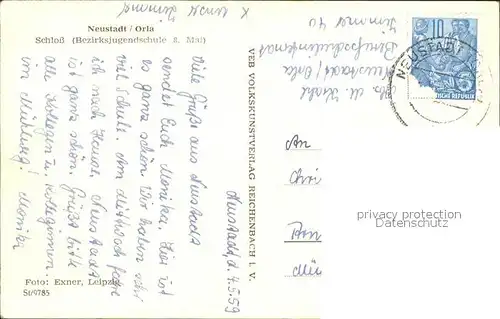 x unser Zimmer
Neustadt / Orla
Schloß (Bezirksjugendschule 8. Mai)
Neustadt, d. 4.5.59
Viele Grüße aus Neustadt
sendet Euch Monika. Hier ist
es ganz schön. Wir haben sehr
viel Schule. Am Mittwoch fahre
ich nach Hause. Neustadt
ist ganz schön. Grüßt bitte
alle Kollegen u. Kolleginnen
im
Monika
Foto: Exner, Leipzig
St/9785
VEB VOLKSKUNSTVERLAG REICHENBACH I. V.
Neustadt/Orla
Zimmer 40
10
DEUTSCHE DEMOKRATISCHE REPUBLIK
NEUSTADT
An
privacy protection
Datenschutz